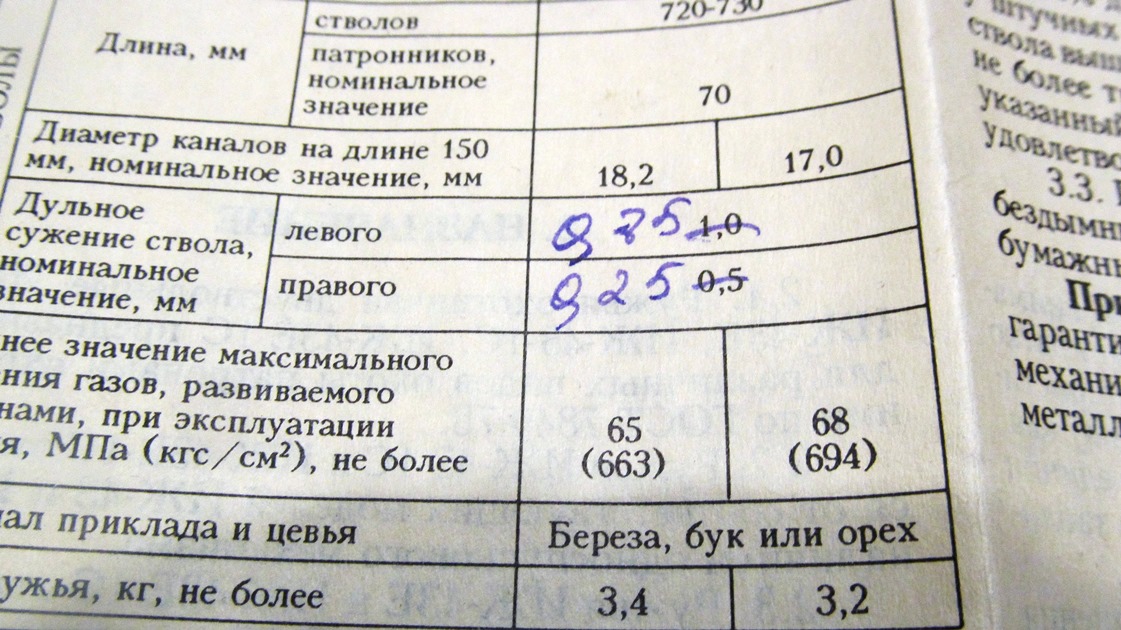 стволов
720-730
Длина, мм
патронников,
номинальное
значение
70
Диаметр каналов на длине 150
мм, номинальное значение, мм
18,2
17,0
Дульное
сужение ствола,
номинальное
значение, мм
левого
0,75 1,0
правого
0,25 0,5
нее значение максимального
ения газов, развиваемого
нами, при эксплуатации
я, МПа (кгс/см²), не более
65
(663)
68
(694)
иал приклада и цевья
Береза, бук или орех
ужья, кг, не более
3,4
3,2
штучных
ствола выш
не более т
указанный
удовлетво
3.3.
бездымн
бумажны
При
гаранти
механи
металл